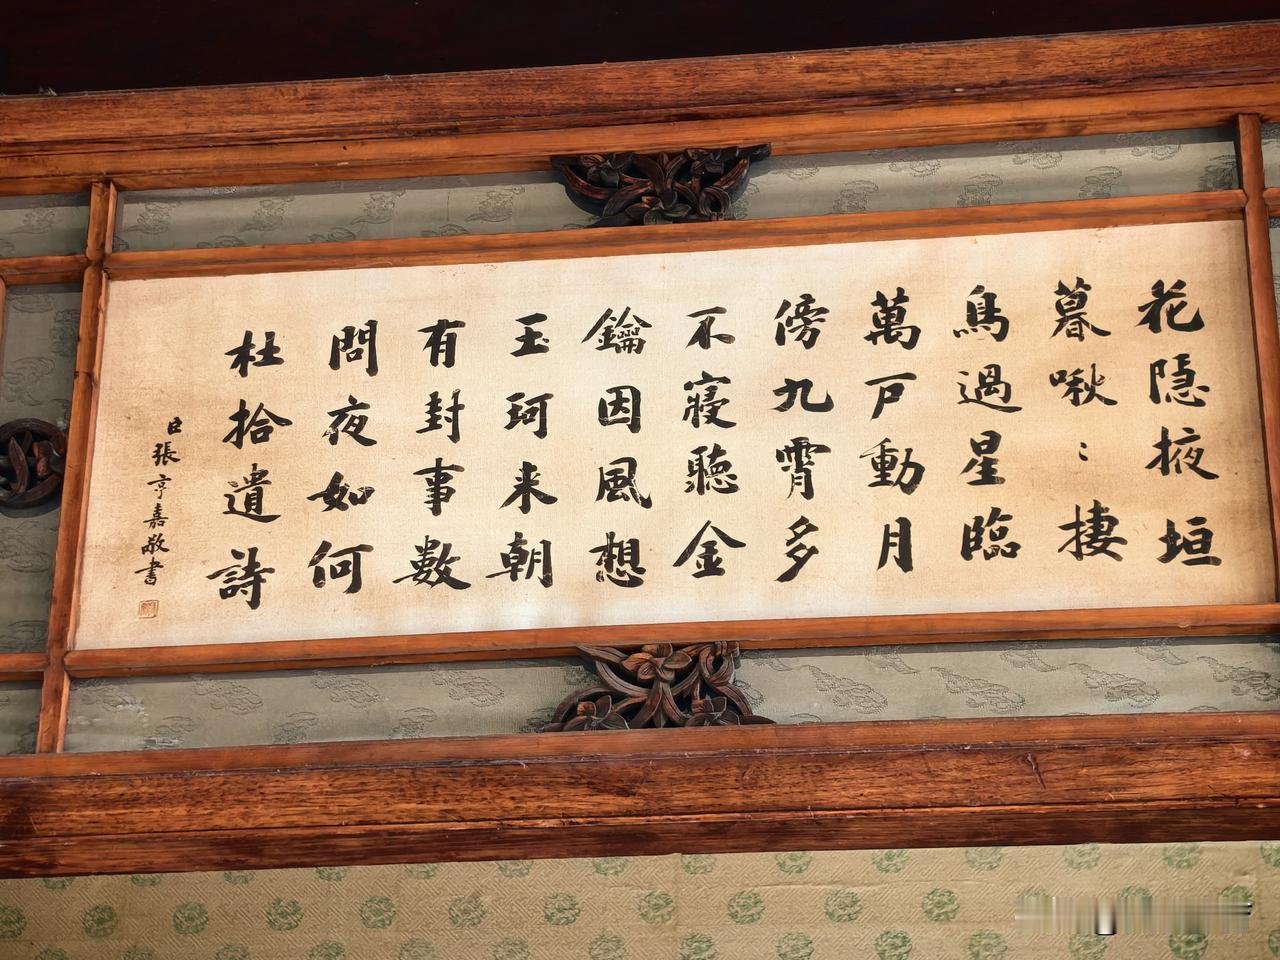 花隱掖垣
暮啾〻棲
鳥過星臨
萬戶動月
傍九霄多
不寢聽金
鑰因風想
玉珂来朝
有封事數
問夜如何
杜拾遺詩
臣張亨嘉敬書